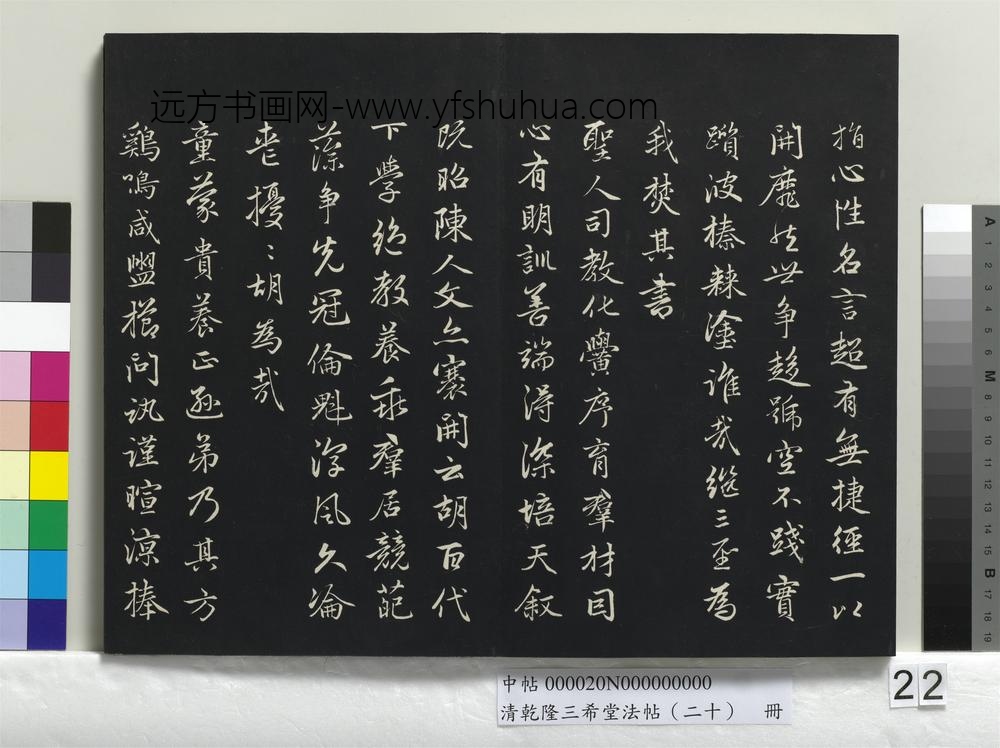 远方书画网-www.yfshuhua.com
指心性名言超有無捷徑一以
開靡然世争趍號空不踐實
躓彼榛棘塗誰哉継三聖為
我焚其書
聖人司教化黌序育羣材因
心有明訓善端得深培天叙
既昭陳人文亦褰開云胡百代
下學絶教養乖羣居競葩
藻争先冠倫魁淳風久淪
喪擾〻胡為哉
童蒙貴養正遜弟乃其方
鷄鳴咸盥櫛問訊謹暄凉捧
中帖 000020N000000000
清乾隆三希堂法帖（二十） 冊
22
A 1 2 3 4 5 6 M 8 9 10 11 12 13 14 15 B 17 18 19